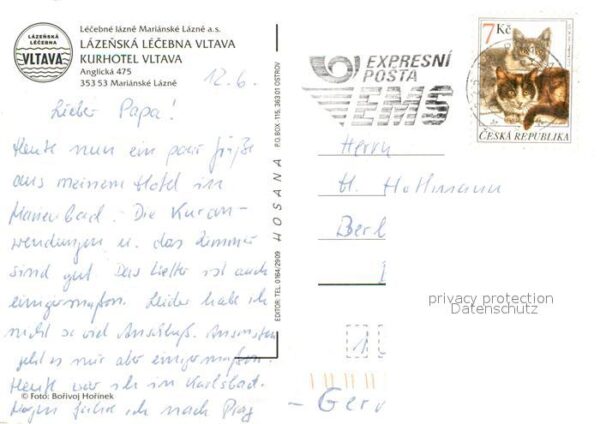 Léčebné lázně Mariánské Lázně a.s.
LÁZEŇSKÁ LÉČEBNA VLTAVA
KURHOTEL VLTAVA
Anglická 475
353 53 Mariánské Lázně
LÁZEŇSKÁ LÉČEBNA
VLTAVA
12.6.
Lieber Papa!
Heute nun ein paar Grüße
aus meinem Hotel in
Marienbad. Die Kuran-
wendungen u. das Zimmer
sind gut. Das Wetter ist auch
einigermaßen. Leider habe ich
nicht so viel Anschluß. Ansonsten
geht es mir aber einigermaßen.
Heute war ich in Karlsbad.
Morgen fahre ich nach Prag
© Foto: Bořivoj Hořínek
EDITOR: TEL. 0164/2909 HOSANA P.O.BOX 115, 363 01 OSTROV
EXPRESNÍ
POSTA
EMS
7 Kč
ČESKÁ REPUBLIKA
Herrn
H. Hoffmann
Berl
1
- Ger
privacy protection
Datenschutz